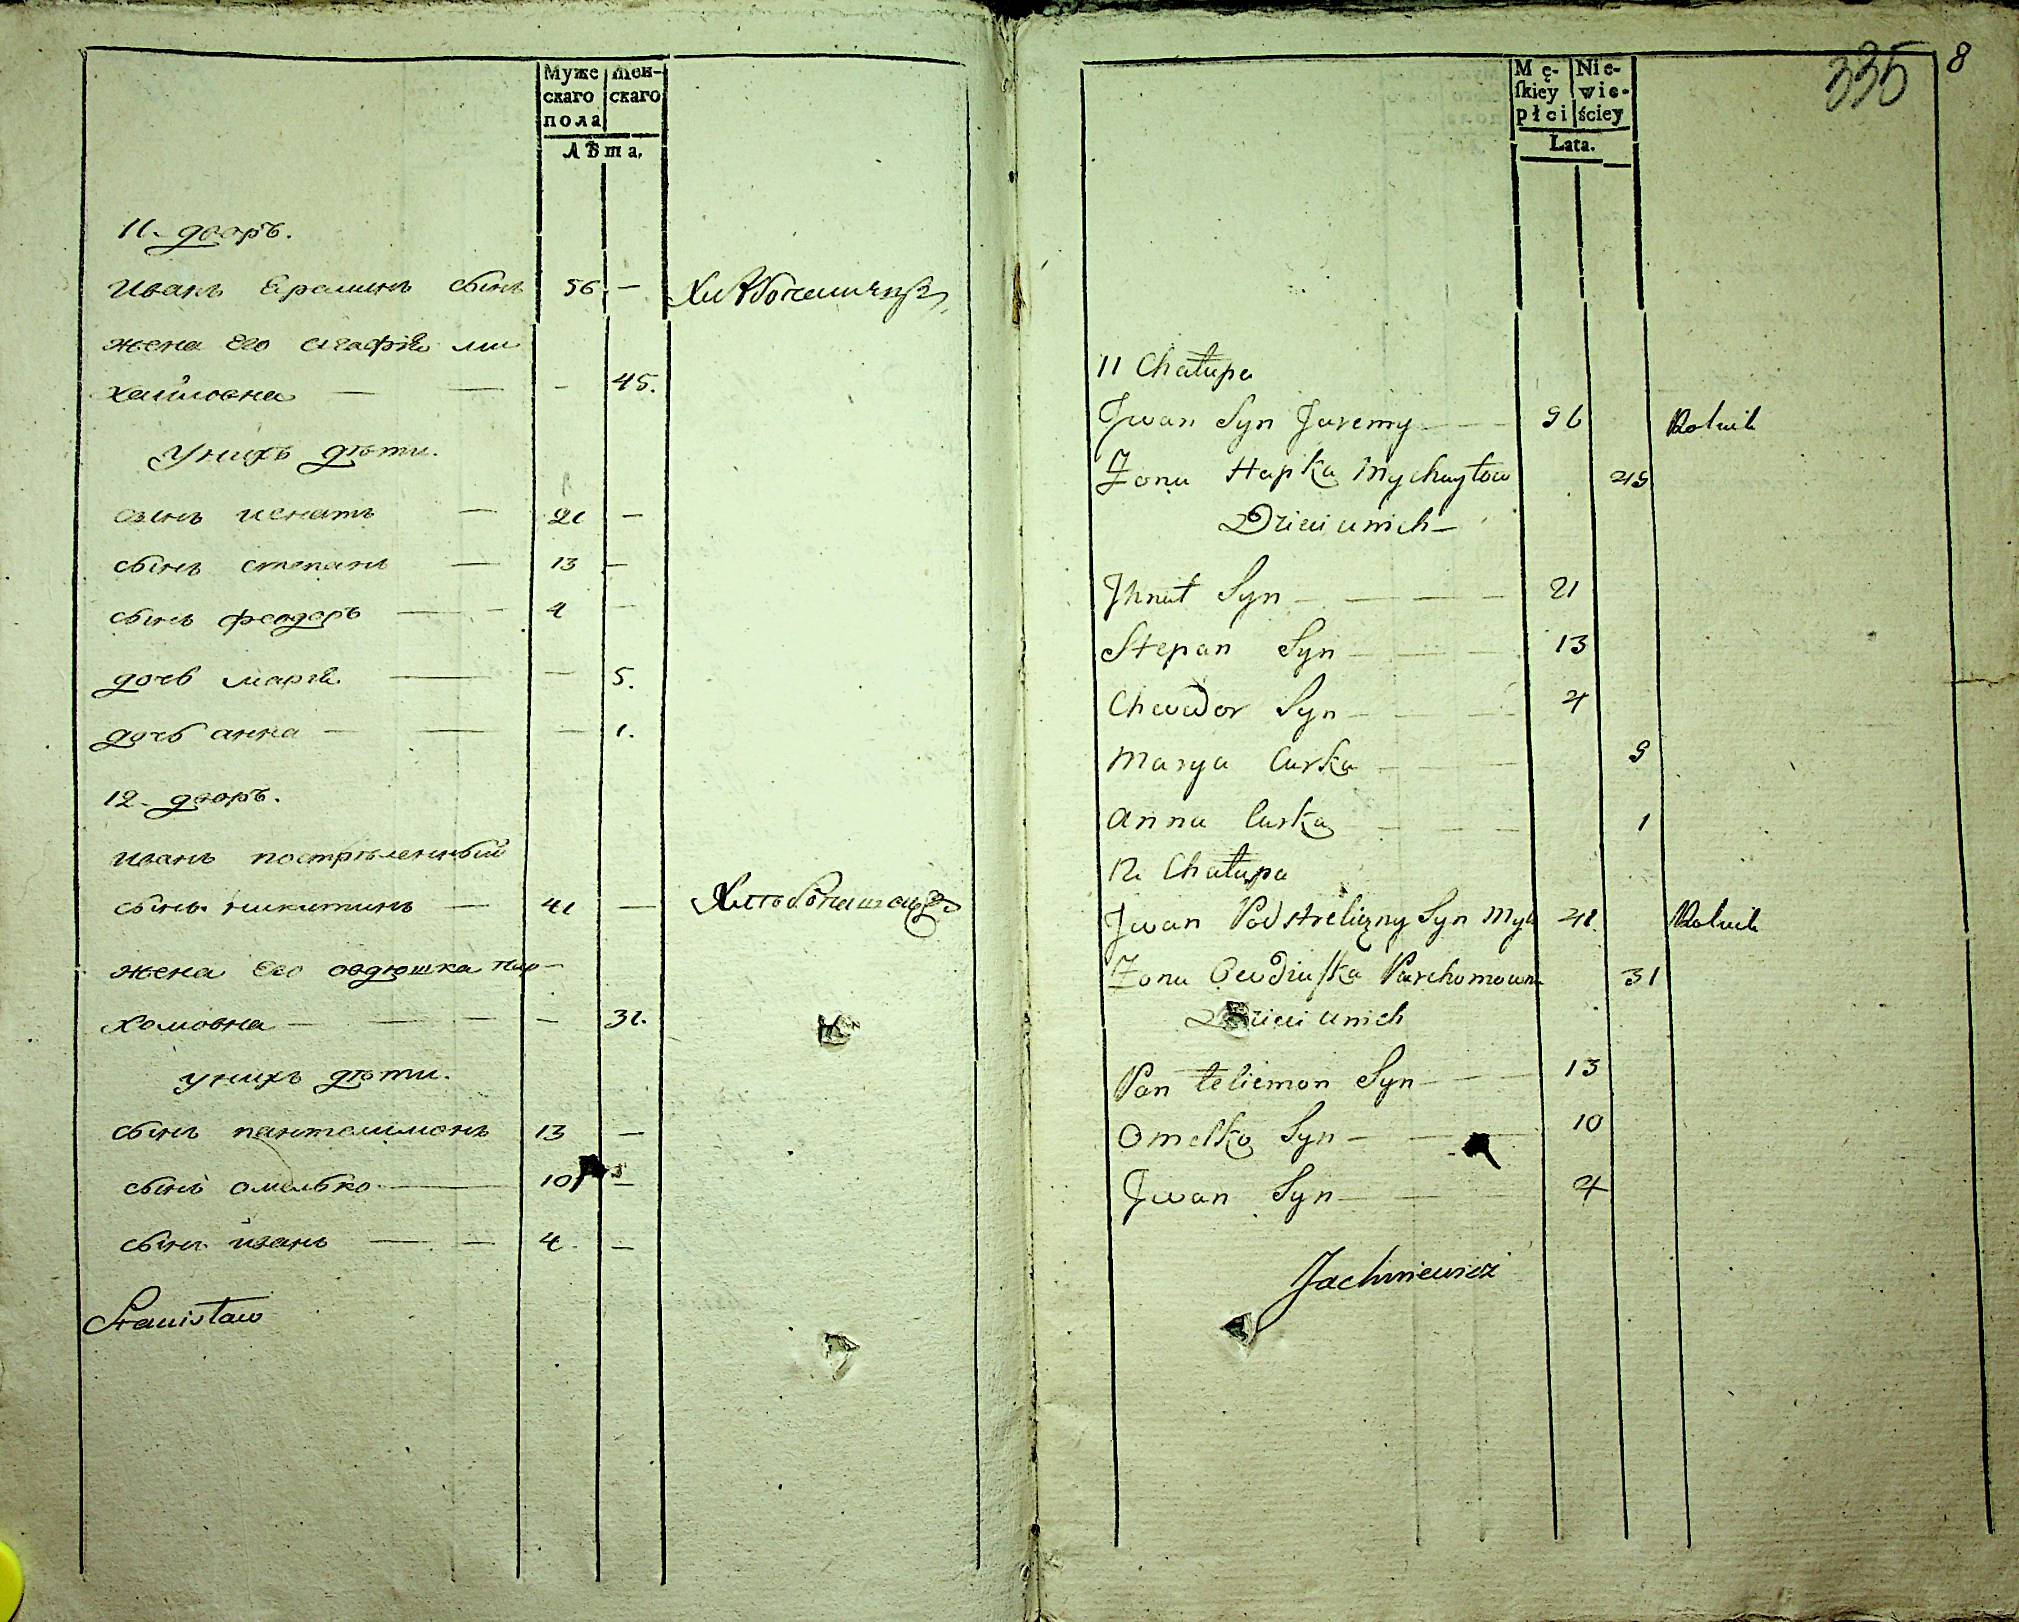 Муже
скаго
пола
Жен-
скаго
Лѣта.
11. дворъ.
Иванъ Еремин сынъ 56 — Хлѣбопашецъ
жена его агафія ми
хайловна — — — 45.
У нихъ дѣти.
сынъ игнатъ — 21 —
сынъ степанъ — 13 —
сынъ феодоръ — - 4 —
дочь марія — — 5.
дочь анна — — — 1.
12. дворъ.
иванъ пострѣленный
сынъ никитинъ — 41 — Хлѣбопашецъ
жена его овдюшка пар-
хомовна — — — — — 31.
у нихъ дѣти.
сынъ пантелимонъ 13 —
сынъ омелько — 10 —
сынъ иванъ — — 4. —
Stanisław
335 8
Mę-
ſkiey
płci
Nie-
wie-
ściey
Lata.
11 Chałupa
Jwan Syn Jaremy — — 56 Rolnik
Żona Hapka Mychayłow 45
Dzieci u nich —
Jhnat Syn — — — — 21
Stepan Syn — — — 13
Chwedor Syn — — — 4
Marya Curka — — — 5
Anna Curka — — — 1
12 Chałupa
Jwan Podstreliczny Syn Myk 41 Rolnik
Żona Owdiuſka Parchomowna 31
Dzieci u nich
Pan teliemon Syn — — — 13
Omelko Syn — — — 10
Jwan Syn — — — 4
Jachniewicz